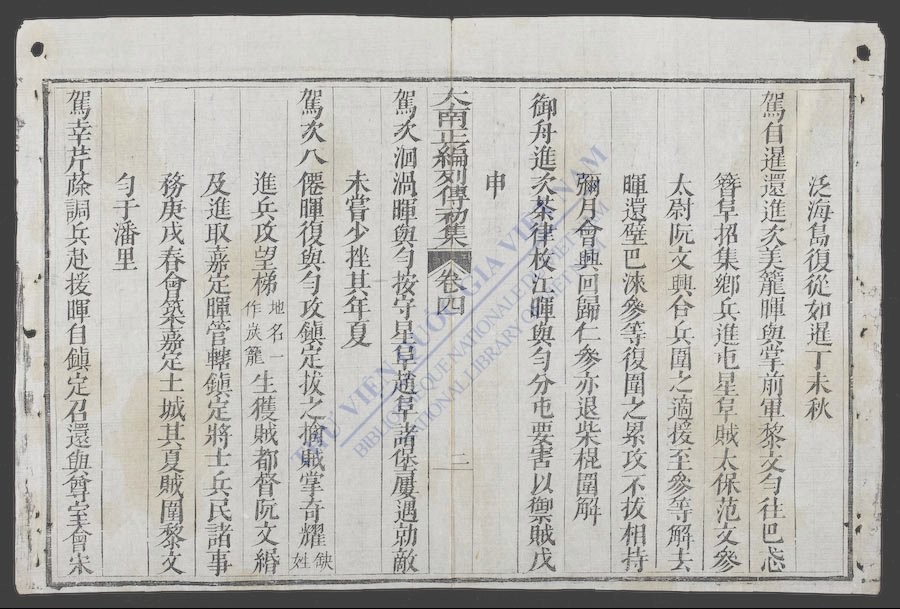 泛海島復從如暹丁未秋
駕自暹還進次美籠暉與掌前軍黎文勻往巴忒
簪阜招集鄉兵進屯星阜賊太保范文參
太尉阮文興合兵圍之適援至參等解去
暉還壁巴涑參等復圍之累攻不拔相持
彌月會興回歸仁參亦退柴棍圍解
御舟進次茶律枚江暉與勻分屯要害以禦賊戊
申
大南正編列傳初集 卷四 二
駕次洄渦暉與勻按守星阜趙阜諸堡屢遇勍敵
未嘗少挫其年夏
駕次八僊暉復與勻攻鎮定拔之擒賊掌奇耀缺姓
進兵攻望梯地名一作歲籠生獲賊都督阮文緡
及進取嘉定暉管轄鎮定將士兵民諸事
務庚戌春會築嘉定土城其夏賊圍黎文
勻于潘里
駕幸芹蒢調兵赴援暉自鎮定召還與尊室會宋
THƯ VIỆN QUỐC GIA VIỆT NAM
BIBLIOTHEQUE NATIONALE DU VIETNAM
NATIONAL LIBRARY OF VIETNAM